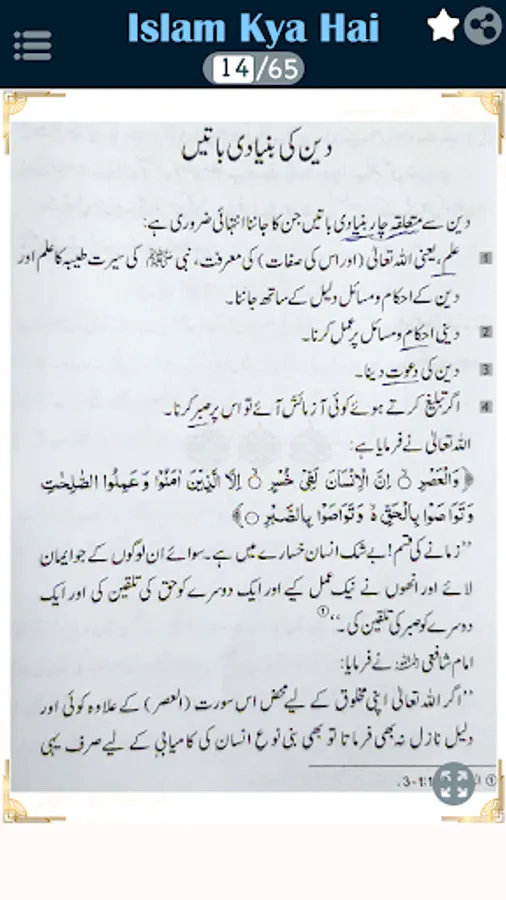 Islam Kya Hai
14/65
دین کی بنیادی باتیں
دین سے متعلقہ چار بنیادی باتیں جن کا جاننا انتہائی ضروری ہے:
1 علم، یعنی اللہ تعالیٰ (اور اس کی صفات) کی معرفت، نبی ﷺ کی سیرت طیبہ کا علم اور
دین کے احکام و مسائل دلیل کے ساتھ جاننا۔
2 دینی احکام و مسائل پر عمل کرنا۔
3 دین کی دعوت دینا۔
4 اگر تبلیغ کرتے ہوئے کوئی آزمائش آئے تو اس پر صبر کرنا۔
اللہ تعالیٰ نے فرمایا ہے:
﴿وَالْعَصْرِ ۝ اِنَّ الْاِنْسَانَ لَفِیْ خُسْرٍ ۝ اِلَّا الَّذِیْنَ اٰمَنُوْا وَعَمِلُوا الصّٰلِحٰتِ
وَتَوَاصَوْا بِالْحَقِّ ۙ وَتَوَاصَوْا بِالصَّبْرِ ۝﴾
’’زمانے کی قسم! بے شک انسان خسارے میں ہے۔ سوائے ان لوگوں کے جو ایمان
لائے اور انھوں نے نیک عمل کیے اور ایک دوسرے کو حق کی تلقین کی اور ایک
دوسرے کو صبر کی تلقین کی۔‘‘①
امام شافعی رحمہ اللہ نے فرمایا:
’’اگر اللہ تعالیٰ اپنی مخلوق کے لیے محض اس سورت (العصر) کے علاوہ کوئی اور
دلیل نازل نہ بھی فرماتا تو بھی بنی نوع انسان کی کامیابی کے لیے صرف یہی
① 1:1-3.